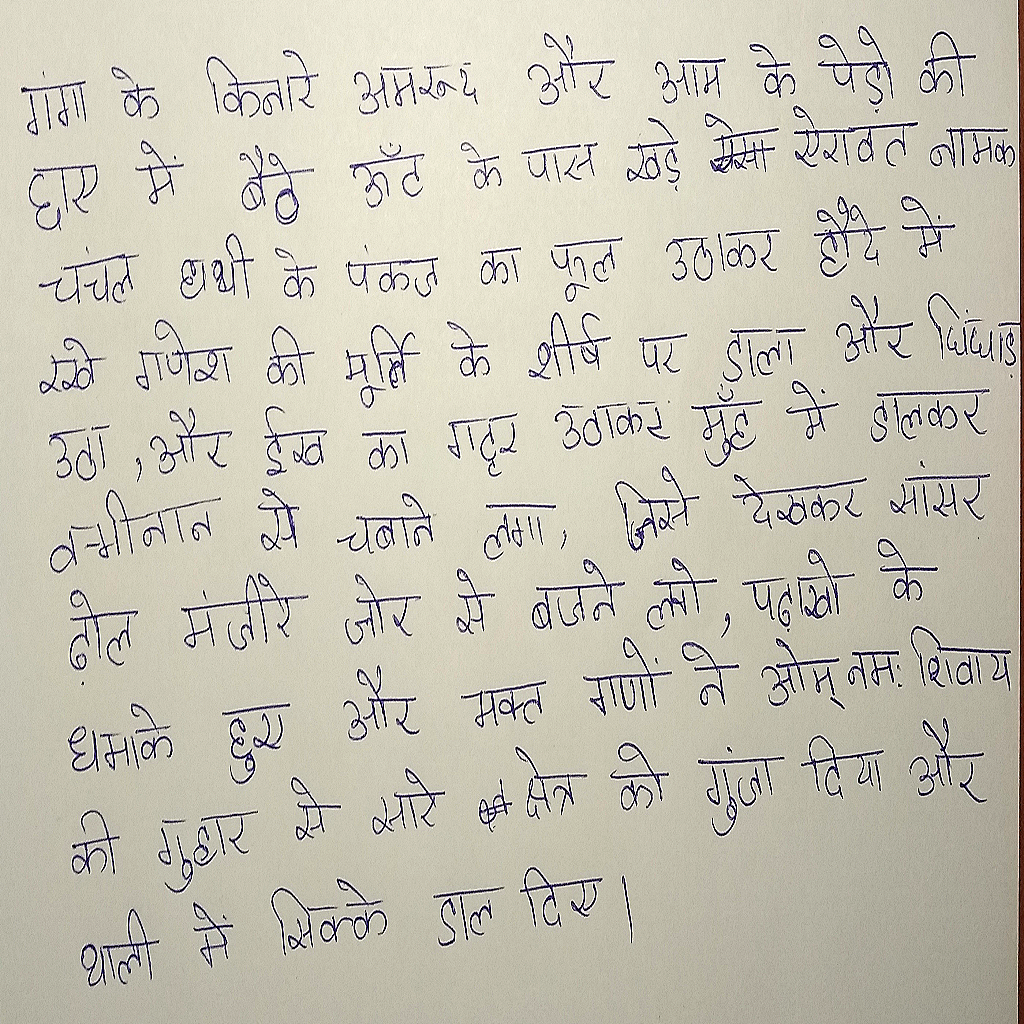 गंगा के किनारे अमरूद और आम के पेड़ो की
छाए में बैठे ऊँट के पास खड़े ऐरावत नामक
चंचल हाथी के पंकज का फूल उठाकर हौदे में
रखे गणेश की मूर्ति के शीर्ष पर ड़ाला और चिंघाड़
उठा, और ईख का गट्ठर उठाकर मुँह में डालकर
से चबाने लगा, जिसे देखकर सांसर
ढ़ोल मंजीरे जोर से बजने लगे, पटाखो के
धमाके हुए और भक्त गणों ने ओम् नमः शिवाय
की गुहार से सारे क्षेत्र को गुंजा दिया और
थाली में सिक्के डाल दिए।